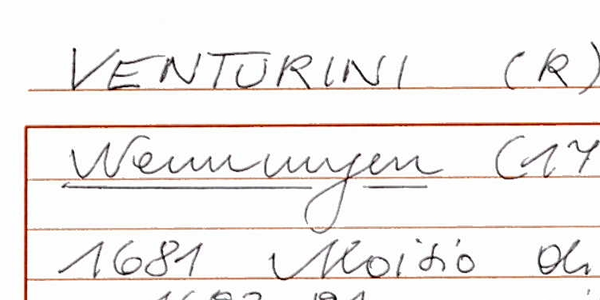 VENTURINI (R)
Wemmingen (17
1681 Aloisio di